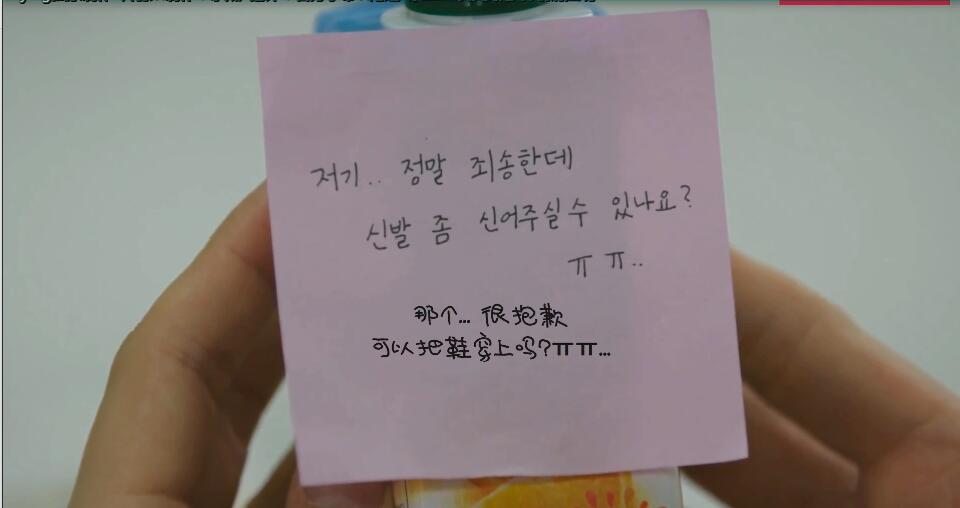 저기.. 정말 죄송한데
신발 좀 신어주실 수 있나요?
ㅠㅠ..
那个... 很抱歉
可以把鞋穿上吗?ㅠㅠ...